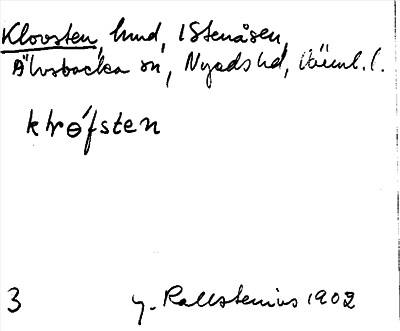 Klovsten, hmd, 1 Stenåsen,
Älvsbacka sn, Nyeds hd, Värml. l.
klrɵ́fsten
3 G. Kallstenius 1902